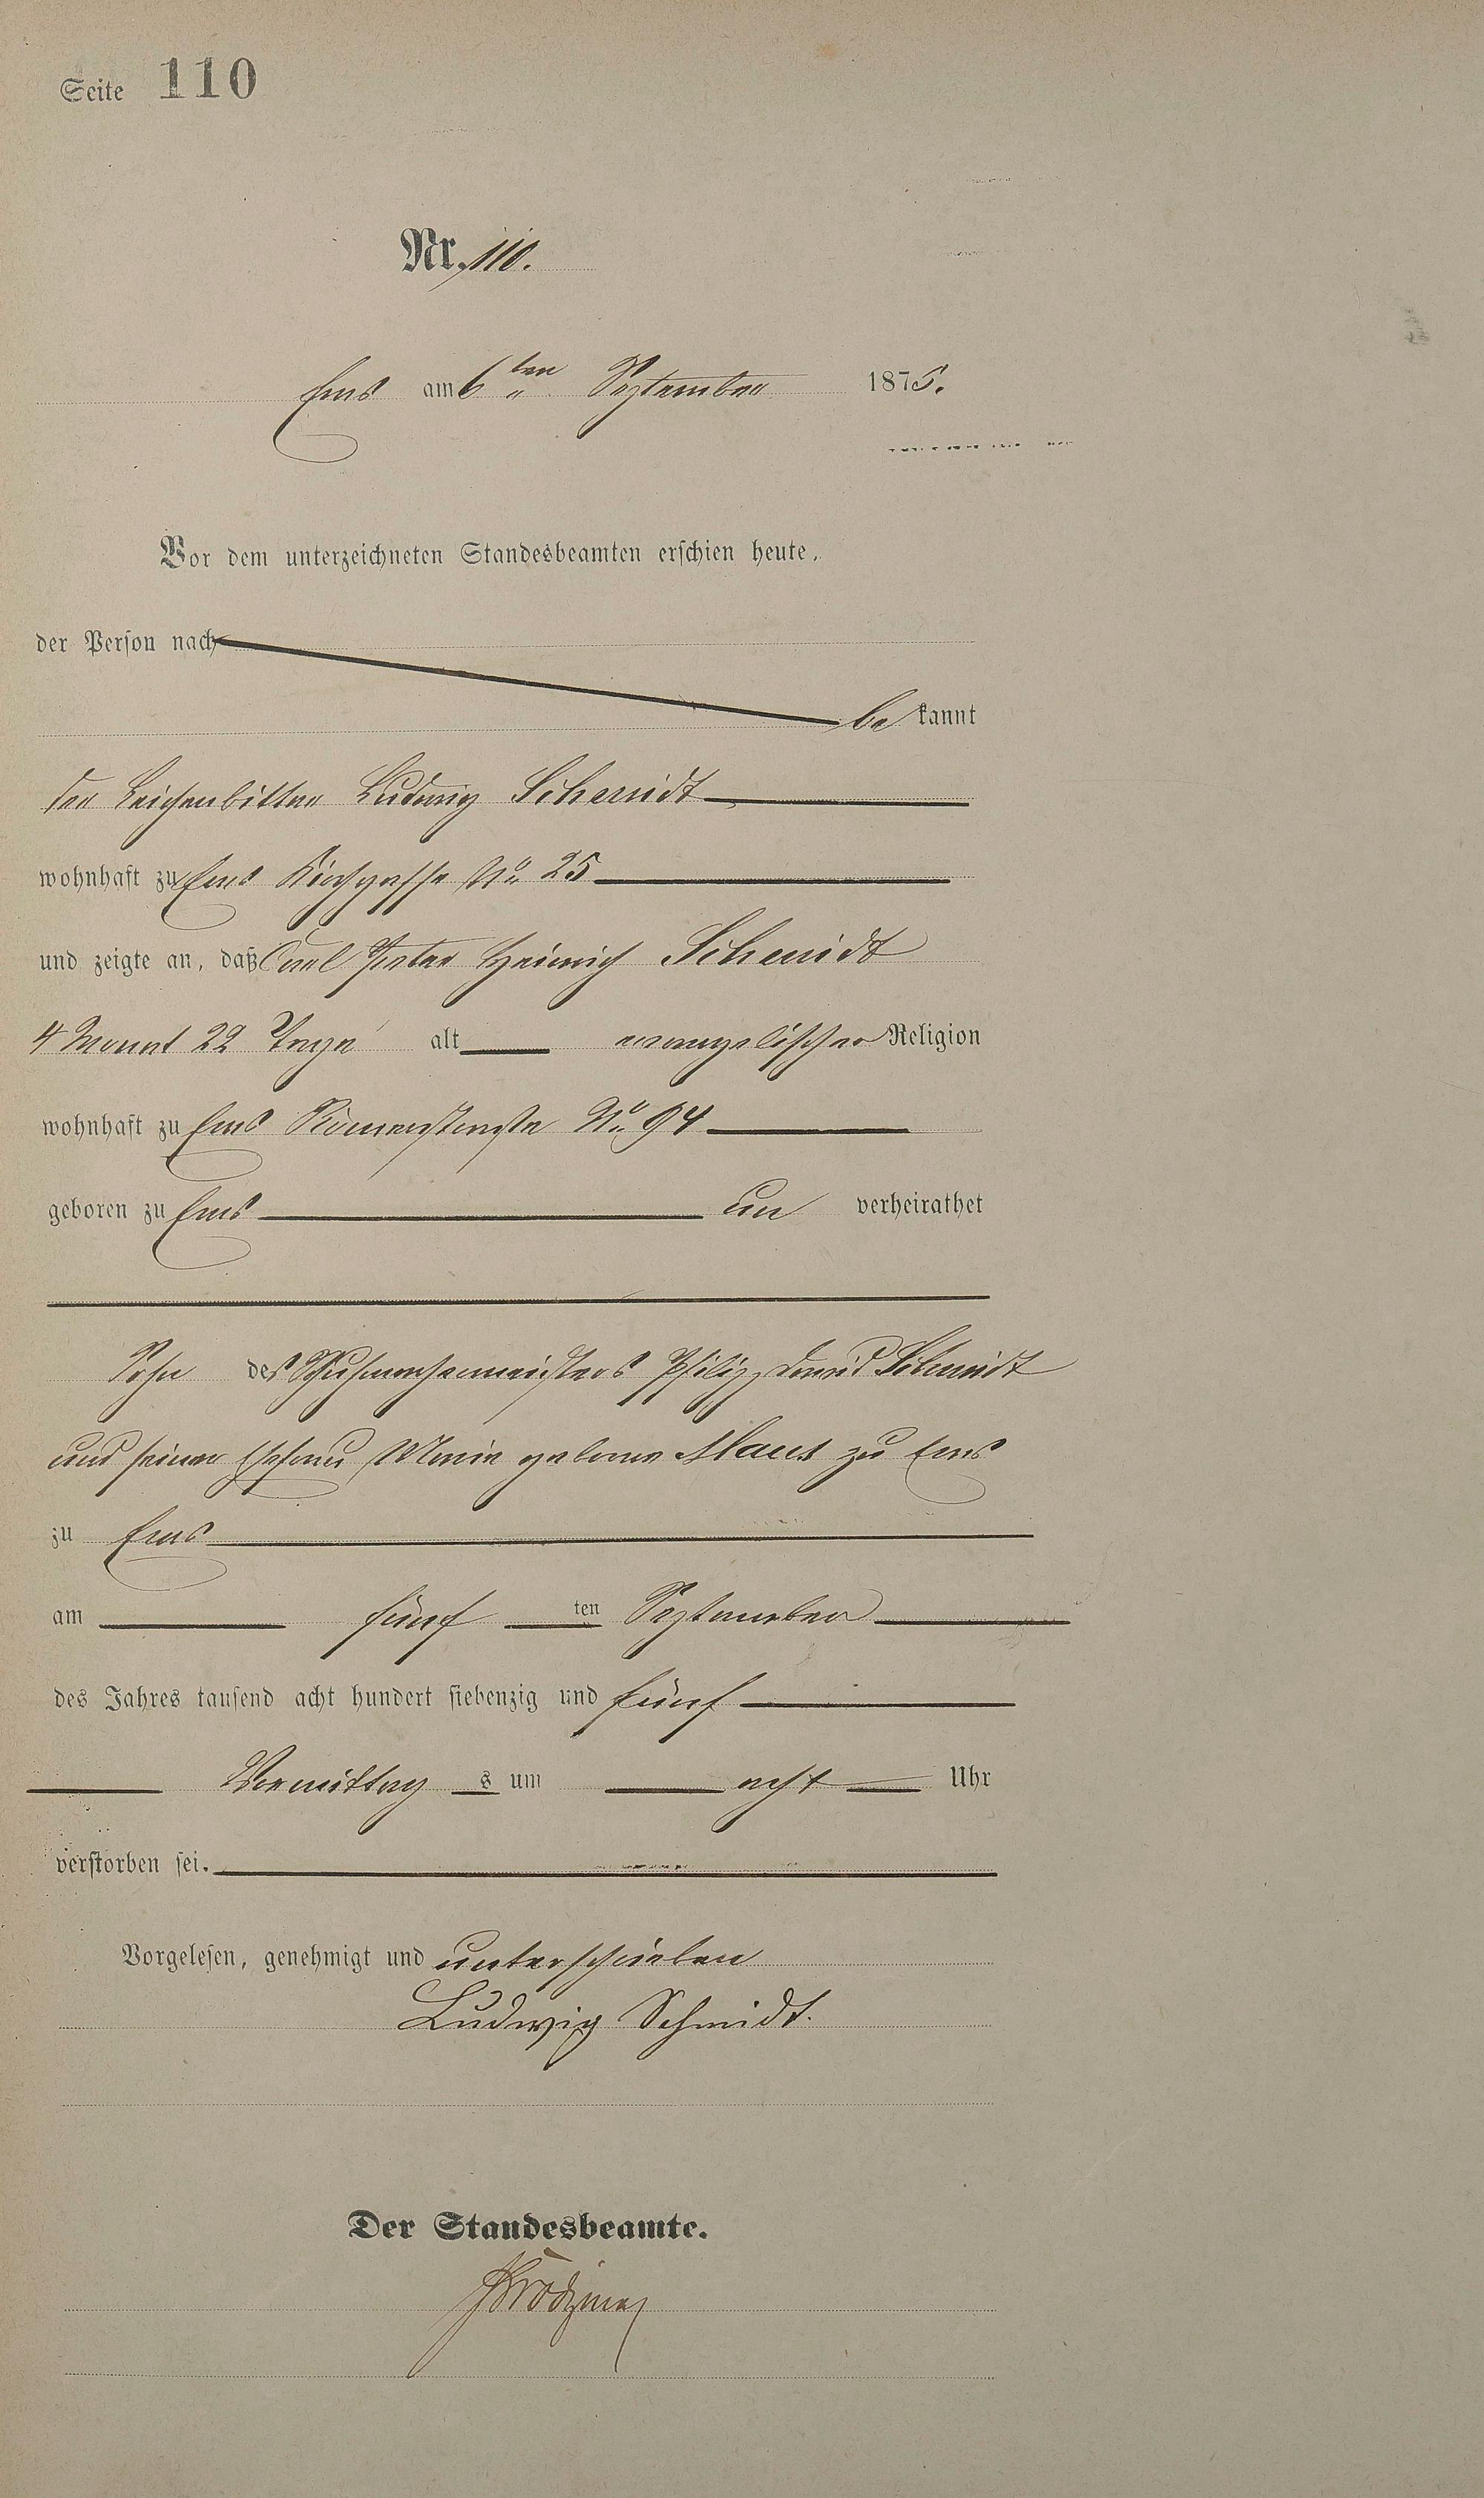 Seite 110
Nr. 110.
Ems am 6ten September 1875.
Vor dem unterzeichneten Standesbeamten erschien heute,
der Person nach
be kannt
der Leichenbitter Ludwig Schmidt
wohnhaft zu Ems Kirchgasse No 25
und zeigte an, daß Carl Peter Heinrich Schmidt
4 Monat 22 Tage alt evangelischer Religion
wohnhaft zu Ems Römerstraße No 94
geboren zu Ems un verheirathet
Sohn des Schuhmachermeisters Philipp David Schmidt
und seiner Ehefrau Marie geborne Maus zu Ems
zu Ems
am fünf ten September
des Jahres tausend acht hundert siebenzig und fünf
Vormittag s um acht Uhr
verstorben sei.
Vorgelesen, genehmigt und unterschrieben
Ludwig Schmidt.
Der Standesbeamte.